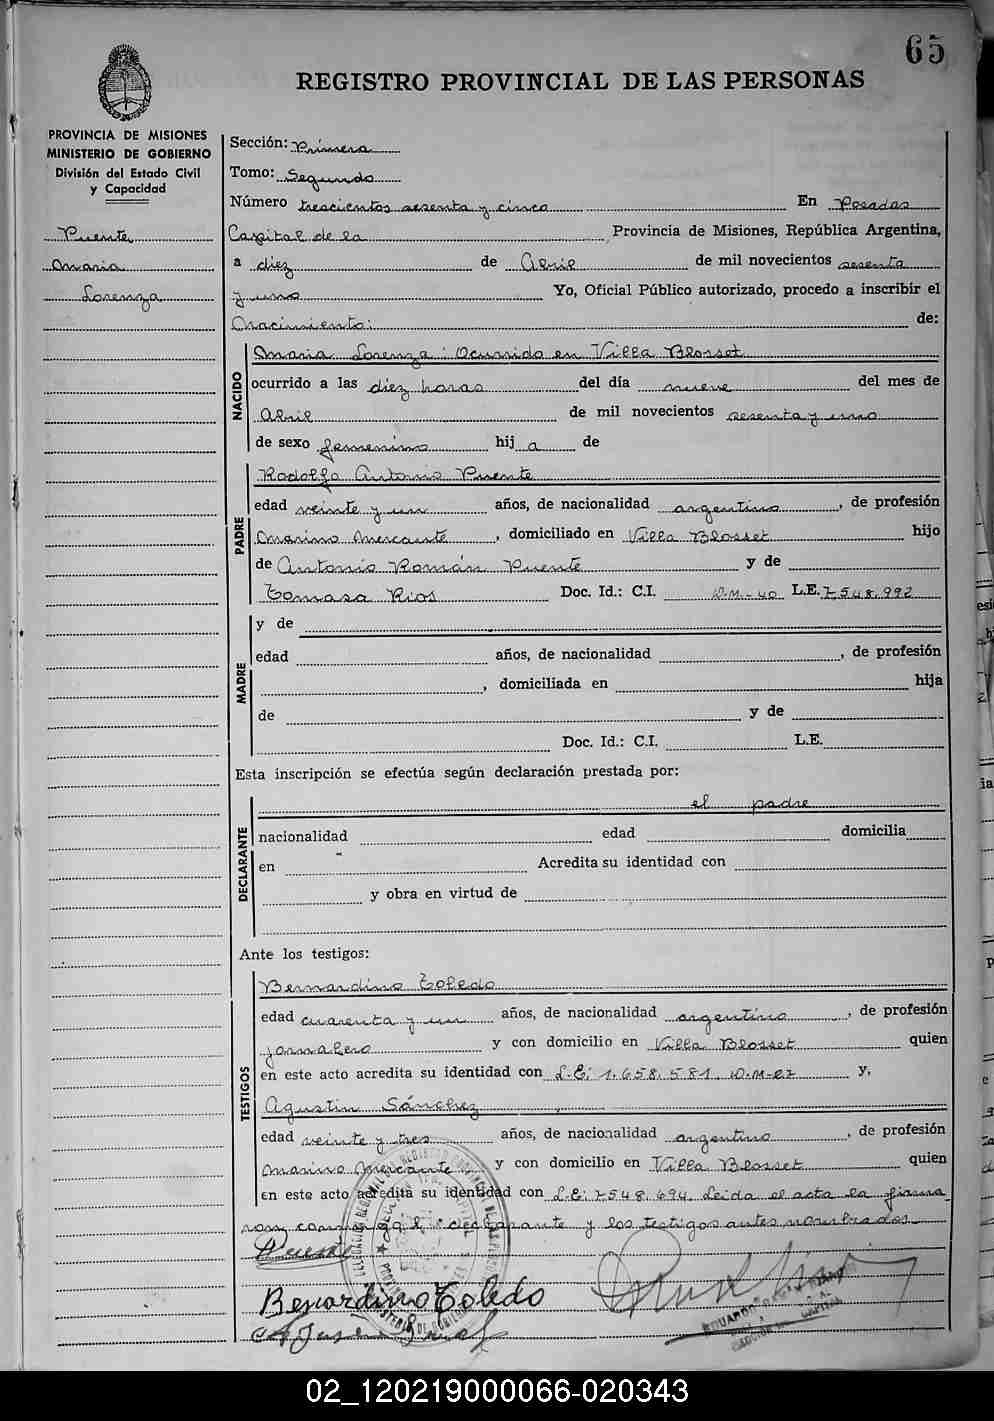 65
REGISTRO PROVINCIAL DE LAS PERSONAS
PROVINCIA DE MISIONES
MINISTERIO DE GOBIERNO
División del Estado Civil
y Capacidad
Puente
Maria
Lorenza
Sección: Primera
Tomo: Segundo
Número trescientos sesenta y cinco En Posadas
Capital de la Provincia de Misiones, República Argentina,
a diez de Abril de mil novecientos sesenta
y uno Yo, Oficial Público autorizado, procedo a inscribir el
Nacimiento: de:
NACIDO
Maria Lorenza: Ocurrido en Villa Blosset
ocurrido a las diez horas del día nueve del mes de
Abril de mil novecientos sesenta y uno
de sexo femenino hij a de
PADRE
Rodolfo Antonio Puente
edad veinte y un años, de nacionalidad argentino, de profesión
Marino Mercante, domiciliado en Villa Blosset hijo
de Antonio Román Puente y de
Tomasa Rios Doc. Id.: C.I. D.M-40 L.E. 7.548.992
MADRE
y de
edad años, de nacionalidad , de profesión
, domiciliada en hija
de y de
Doc. Id.: C.I. L.E.
Esta inscripción se efectúa según declaración prestada por:
DECLARANTE
el padre
nacionalidad edad domicilia
en Acredita su identidad con
y obra en virtud de
Ante los testigos:
TESTIGOS
Bernardino Toledo
edad cuarenta y un años, de nacionalidad argentino, de profesión
jornalero y con domicilio en Villa Blosset quien
en este acto acredita su identidad con L.E: 1.658.581 D.M-27 y,
Agustin Sánchez
edad veinte y tres años, de nacionalidad argentino, de profesión
Marino Mercante y con domicilio en Villa Blosset quien
en este acto acredita su identidad con L.E: 7548.694. Leida el acta la firma
ron conmigo el declarante y los testigos antes nombrados
Puente
Berardino Toledo
EDUARDO
CAPITAL
02_120219000066-020343